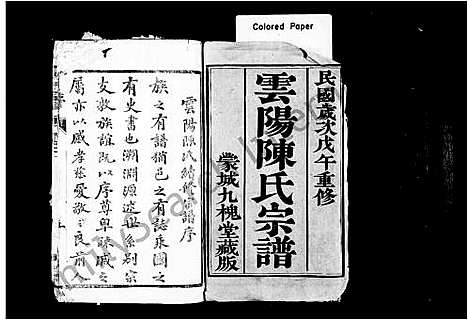 Colored Paper
民國歲次戊午重修
雲陽陳氏宗譜
蒙城九槐堂藏版
雲陽陳氏續修宗譜序
族之有譜猶邑之有誌乘國之
有史書也溯淵源述世系別宗
支敦族誼既以序尊卑聯戚之
屬亦以感孝慈愛敬之良前人